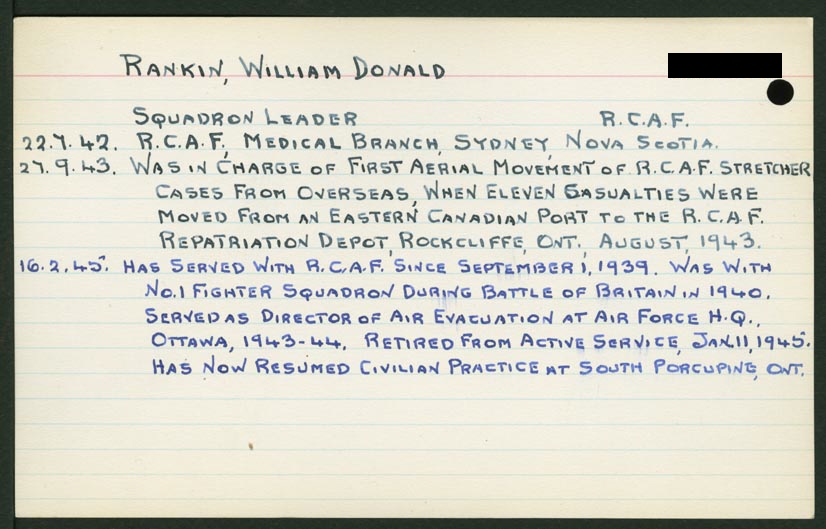 RANKIN, WILLIAM DONALD
SQUADRON LEADER R.C.A.F.
22.7.42. R.C.A.F., MEDICAL BRANCH, SYDNEY, NOVA SCOTIA.
27.9.43. WAS IN CHARGE OF FIRST AERIAL MOVEMENT OF R.C.A.F. STRETCHER
CASES FROM OVERSEAS, WHEN ELEVEN CASUALTIES WERE
MOVED FROM AN EASTERN CANADIAN PORT TO THE R.C.A.F.
REPATRIATION DEPOT, ROCKCLIFFE, ONT., AUGUST, 1943.
16.2.45. HAS SERVED WITH R.C.A.F. SINCE SEPTEMBER 1, 1939. WAS WITH
NO.1 FIGHTER SQUADRON DURING BATTLE OF BRITAIN IN 1940.
SERVED AS DIRECTOR OF AIR EVACUATION AT AIR FORCE H.Q.,
OTTAWA, 1943-44. RETIRED FROM ACTIVE SERVICE, JAN.11, 1945.
HAS NOW RESUMED CIVILIAN PRACTICE AT SOUTH PORCUPINE, ONT.